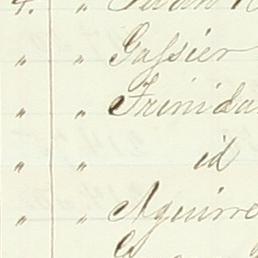 4. " Juan
" " Gassier
" " Trinida
" " id
" " Aguirre